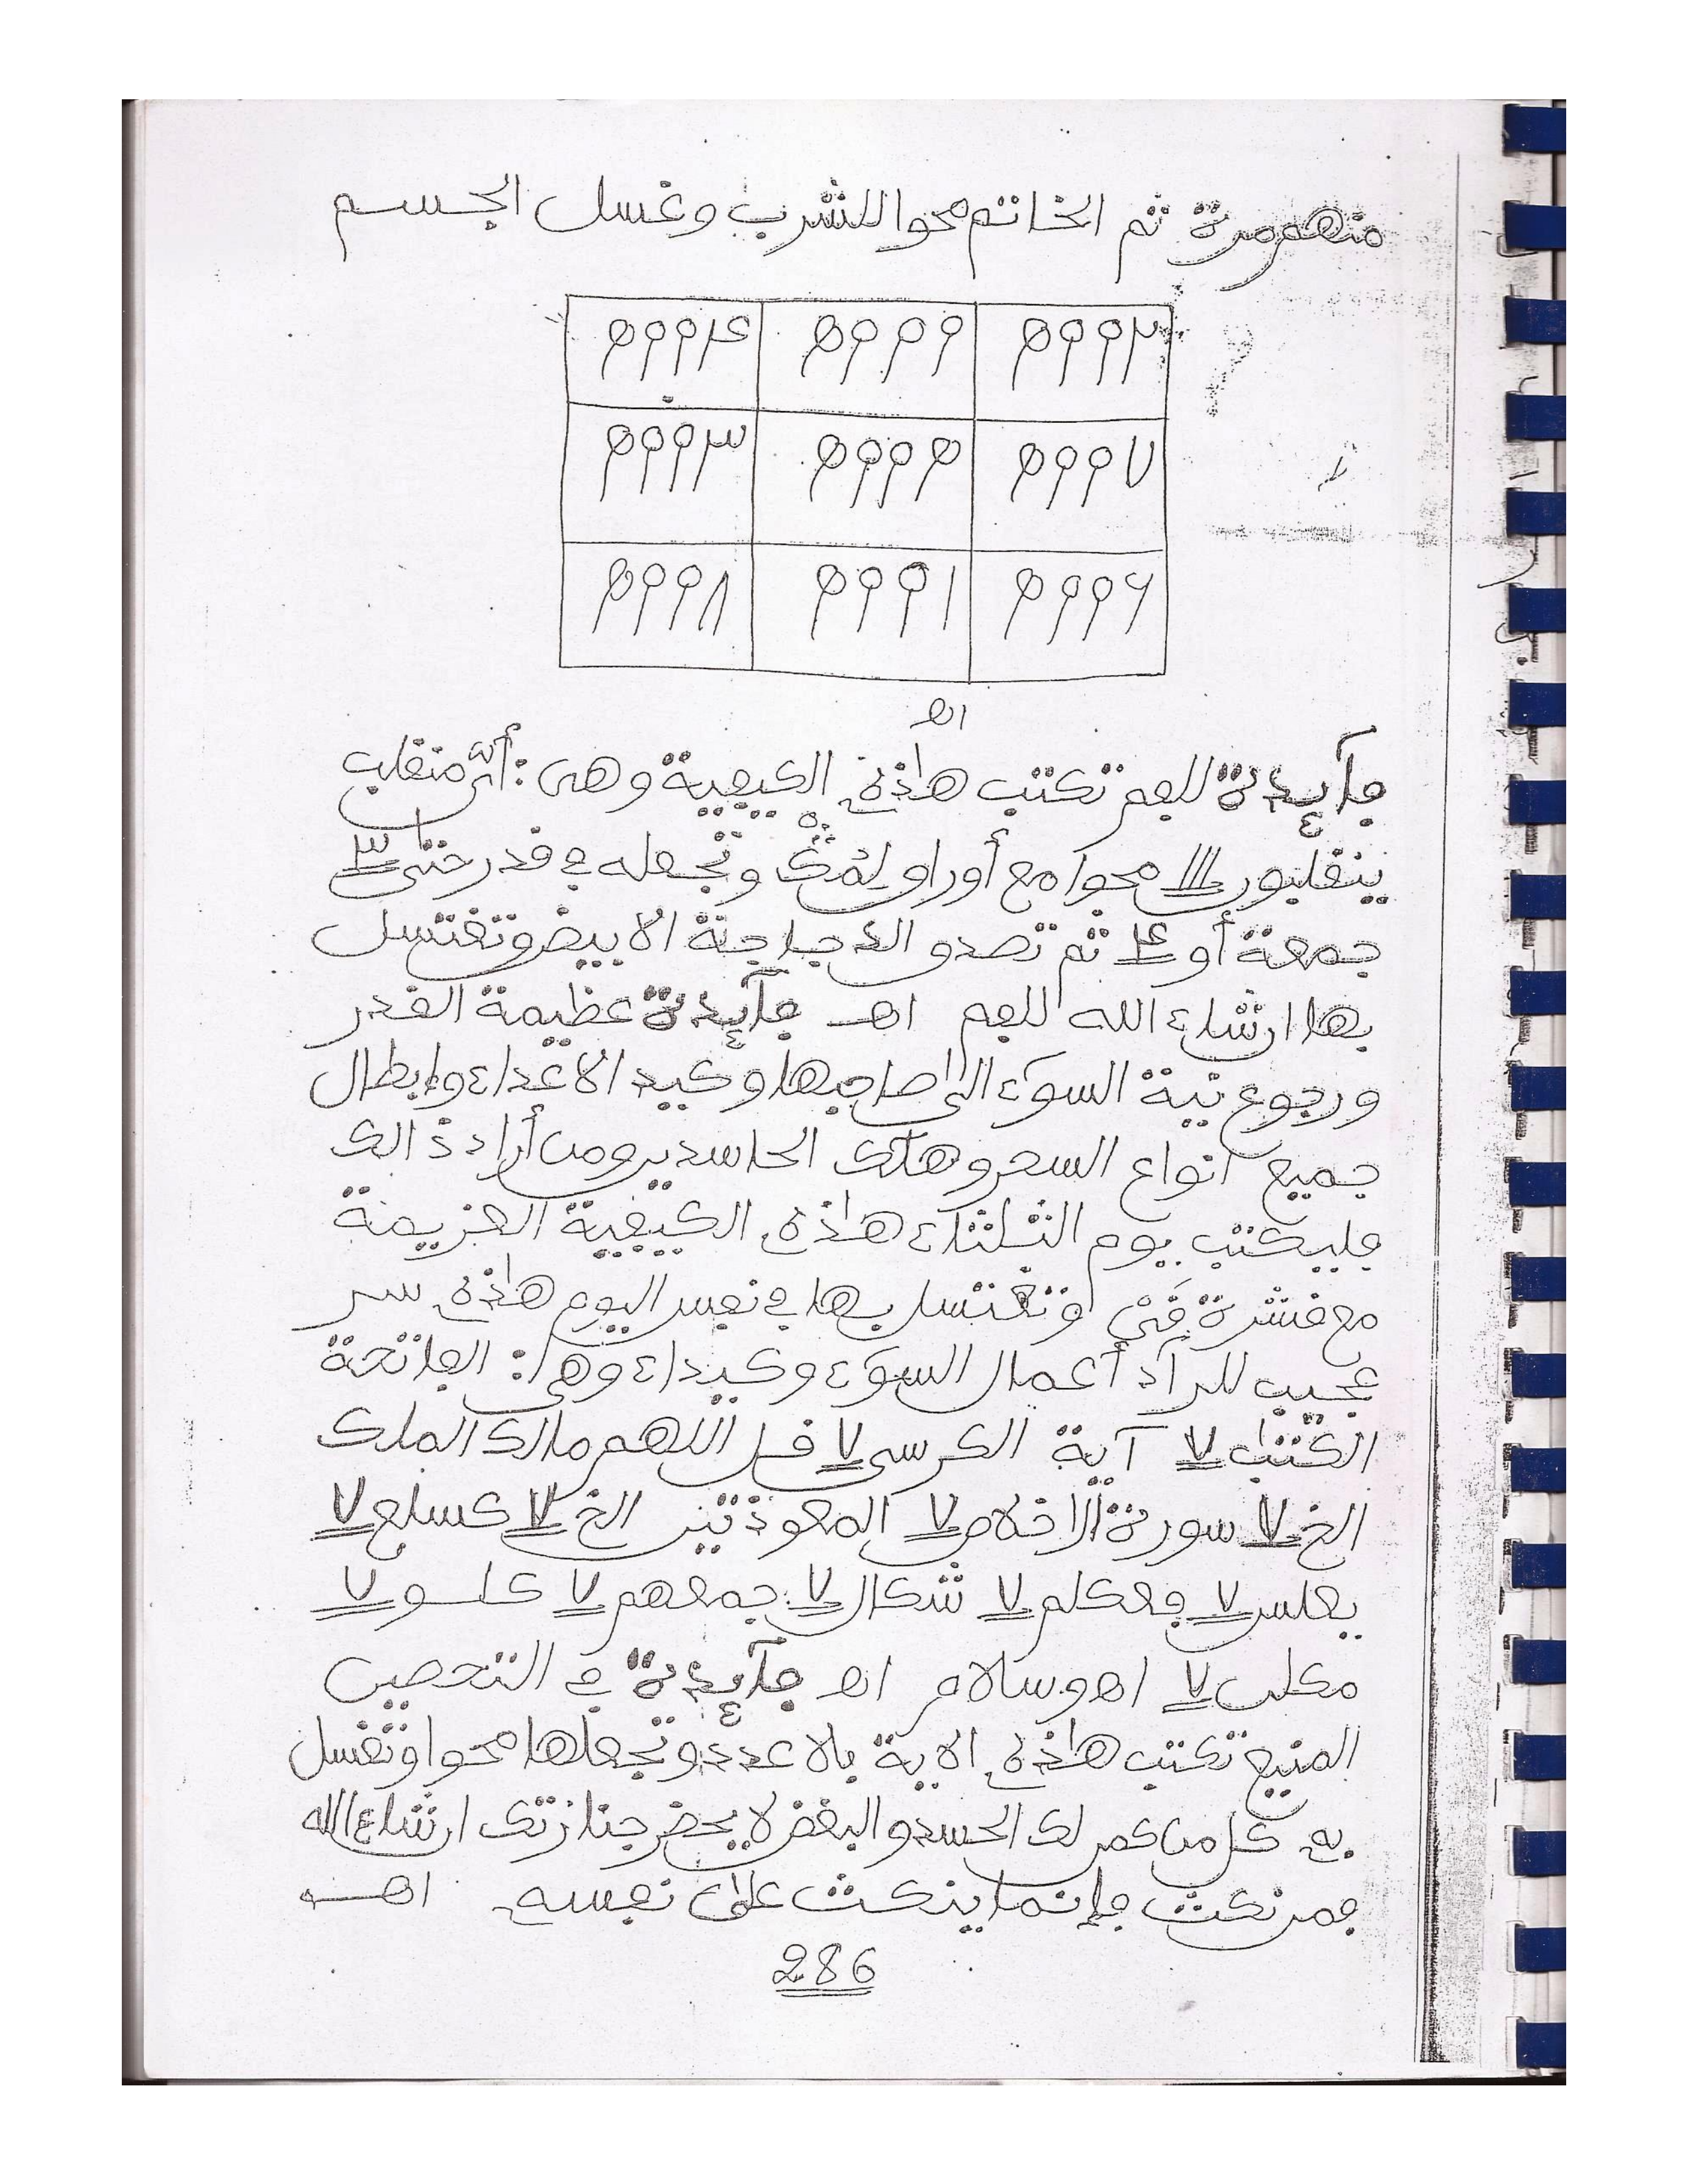 منهم مرة ثم الخاتم محوا للشرب وغسل الجسم
٥٩٩٤ ٥٩٩٩ ٥٩٩٢
٥٩٩٣ ٥٩٩٥ ٥٩٩٧
٥٩٩٨ ٥٩٩١ ٥٩٩٦
اه
فآئدة للفم تكتب هاذه الكيفية وهى : أىّ منقلب
ينقلبون محوا مع أوراق وتجعله في قدر حتى ٣
جمعة أو ٤ ثم تصدق الدجاجة الابيض وتغتسل
بها ان شاء الله للفم اهـ فآئدة عظيمة القدر
ورجوع نية السوء الى صاحبها وكيد الاعداء وإبطال
جميع انواع السحر وهلك الحاسدين ومن أراد ذالك
فليكتب يوم الثلثاء هاذه الكيفية العزيمة
مع قشرة وتغتسل بها في نفس اليوم هاذه سر
عجيب للرآد أعمال السوء وكيداء وهى : الفاتحة
الكتب ٧ آية الكرسى ٧ قل اللهم مالك الملك
الخ ٧ سورة الاخلاص ٧ المعوذتين الخ ٧ كسلع ٧
يعلس ٧ فعكلم ٧ شكال ٧ جمعهم ٧ كلسو ٧
مكلب ٧ اه وسلام اه فآئدة في التحصين
المنيع تكتب هاذه الاية بلا عدد وتجعلها محوا وتغسل
به كل من كمر لك الحسد والبغض لا يحضر جنازتك ان شاء الله
فمن نكث فإنما ينكث على نفسه اهـ
286